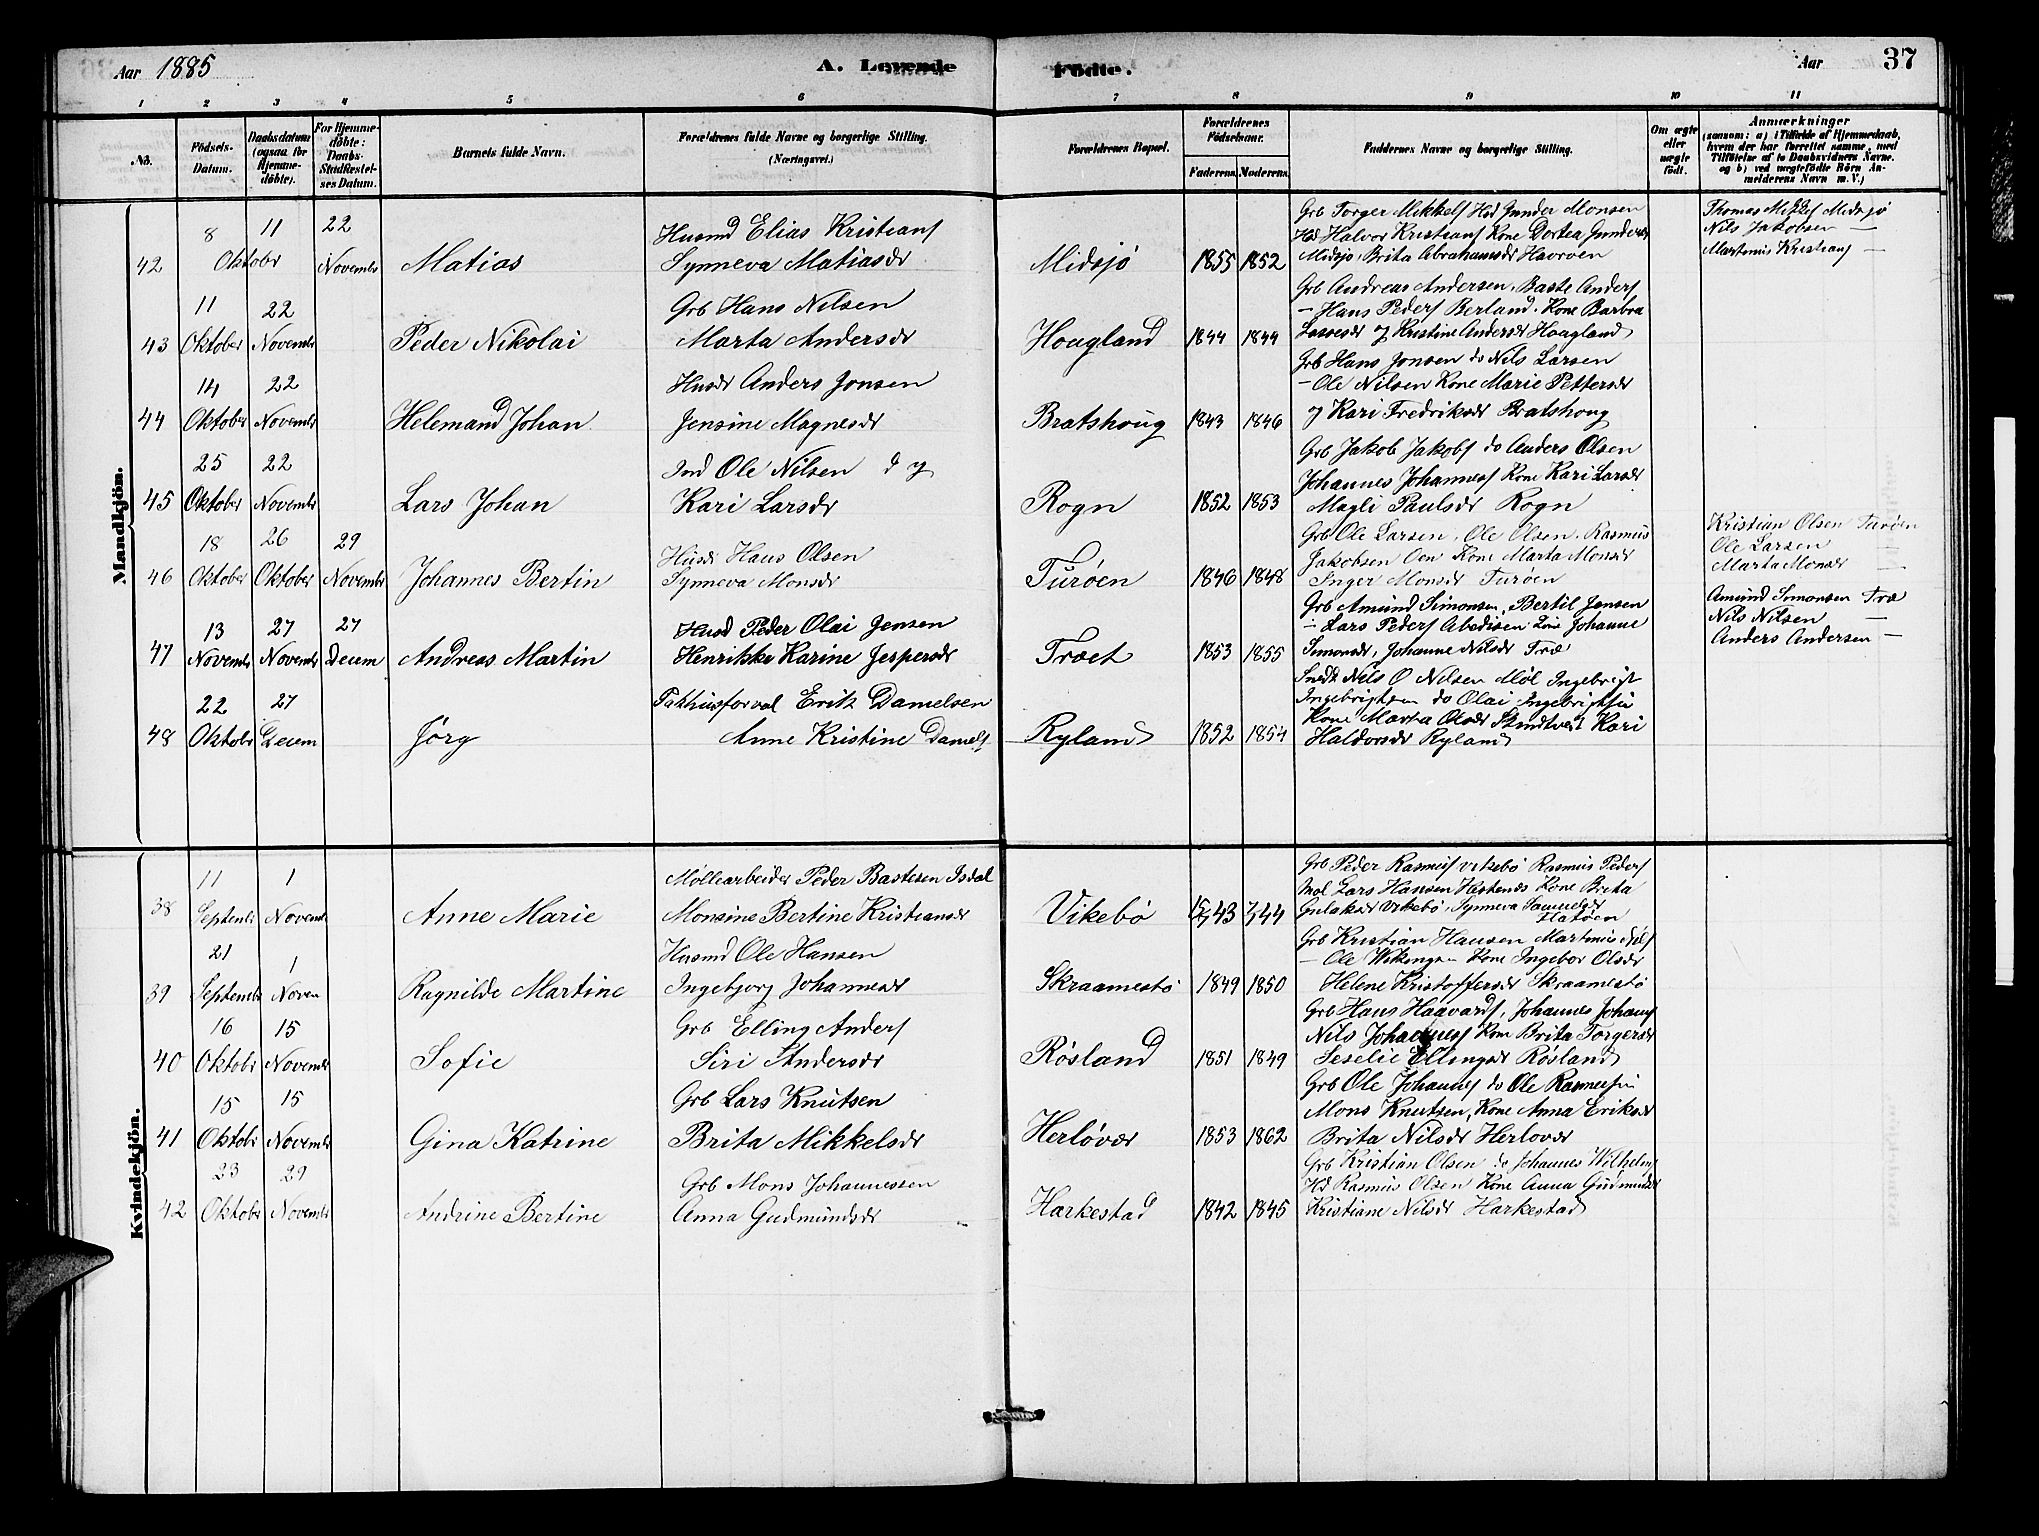 Aar 1885
A. Levende Födte.
Aar
37
1 2 3 4 5 6 7 8 9 10 11
No.
Födsels-Datum.
Daabsdatum (ogsaa for Hjemme-döbte).
For Hjemme-döbte: Daabs-Stadfæstel-ses Datum.
Barnets fulde Navn.
Forældrenes fulde Navne og borgerlige Stilling. (Næringsvei.)
Forældrenes Bopæl.
Forældrenes Födselsaar.
Faderens. Moderens.
Faddernes Navne og borgerlige Stilling.
Om ægte eller uægte födt.
Anmærkninger
(saasom: a) i Tilfælde af Hjemmedaab, hvem der har forrettet samme, med Tilföielse af to Daabsvidners Navne, og b) ved uægtefödte Börn An-melderens Navn m. V.)
Mandkjön.
42
8 Oktober
11
22 Novembr
Matias
Husmd Elias Kristians
Synneva Matiasdr
Midsjø
1855 1852
Grb Torger Mikkels Hsd Gunder Monsen
Hsd Halvor Kristians Kone Dortea Gundersdr
Midsjø, Brita Abrahamsdr Havroen
Thomas Midsjø
Nils Jakobsen —
Martinus Kristians —
43
11 Oktober
22 Novembr
Peder Nikolai
Grb Hans Nilsen
Marta Andersdr
Hoagland
1844 1849
Grb Andreas Andersen, Baste Anders
— Hans Peders Berland. Kone Barbra
Lassesdr og Kristine Andersdr Hoagland
44
14 Oktober
22 Novembr
Helemand Johan
Husdr Anders Jonsen
Jensine Magnesdr
Bratshoug
1843 1846
Grb Hans Jonsen do Nils Larsen
— Ole Nilsen Kone Marie Pettersdr
og Kari Fredriksdr Bratshoug
45
25 Oktober
22 Novembr
Lars Johan
Ind Ole Nilsen d y
Kari Larsdr
Rogn
1852 1853
Grb Jakob Jakobs do Anders Olsen
Johannes Johannes Kone Kari Larsdr
Magli Paulsdr Rogn
46
18 Oktober
26 Oktober
29 Novembr
Johannes Bertin
Husdr Hans Olsen
Synneva Monsdr
Turøen
1846 1848
Grb Ole Larsen, Ole Olsen, Rasmus
Jakobsen Oen Kone Marta Monsdr
Inger Monsdr Turøen
Kristian Olsen Turøen
Ole Larsen —
Marta Monsdr —
47
13 Novembr
27 Novembr
27 Decem
Andreas Martin
Husd Peder Olai Jensen
Henrikke Karine Jespersdr
Træet
1853 1855
Grb Amund Simonsen, Bertil Jensen
— Lars Peders Kone Johanne
Simonsdr, Johanne Nilsdr Træ
Amund Simonsen Træ
Nils Nilsen —
Anders Andersen —
48
22 Oktobr
27 Decem
Jørg
Pakhusforval Erik Danielsen
Anne Kristine Daniels
Ryland
1852 1854
Snedk Nils O Nilsen Møl Ingebrigt
Ingebrigtsen do Olai Ingebrigtsen
Kone Marta Olsdr Kari
Haldorsdr Ryland
Kvindekjön.
38
11 Septembr
1 Novembr
Anne Marie
Møllearbeider Peder Bastesen Isdal
Monsine Bertine Kristiansdr
Vikebø
43 44
Grb Peder Rasmus Vikebø Rasmus Peders
Møl Lars Hansen Hestenes Kone Brita
Gulaksdr Vikebø, Synneva Samuelsdr
Flatøen
39
21 Septembr
1 Noven
Ragnilde Martine
Husmd Ole Hansen
Ingebjorg Johannesdr
Skraamestø
1849 1850
Grb Kristian Hansen Martinus Nils
— Ole Kone Ingebor Olsdr
Helene Kristoffersdr Skraamestø
40
16 Oktobr
15 Novembr
Sofie
Grb Elling Anders
Siri Andersdr
Røsland
1851 1849
Grb Hans Haavards, Johannes Johans
Nils Johannes Kone Brita Torgersdr
Seselie Ellingsdr Røsland
41
15 Oktobr
15 Novembr
Gina Katrine
Grb Lars Knutsen
Brita Mikkelsdr
Herløvær
1853 1862
Grb Ole Johannes do Ole Rasmussen
Mons Knutsen, Kone Anna Eriksdr
Brita Nilsdr Herlovær
42
23 Oktober
29 Novembr
Andrine Bertine
Grb Mons Johannessen
Anna Gudmundsdr
Harkestad
1842 1845
Grb Kristian Olsen do Johannes Wilhelms
Hd Rasmus Olsen Kone Anna Gudmundsdr
Kristiane Nilsdr Harkestad